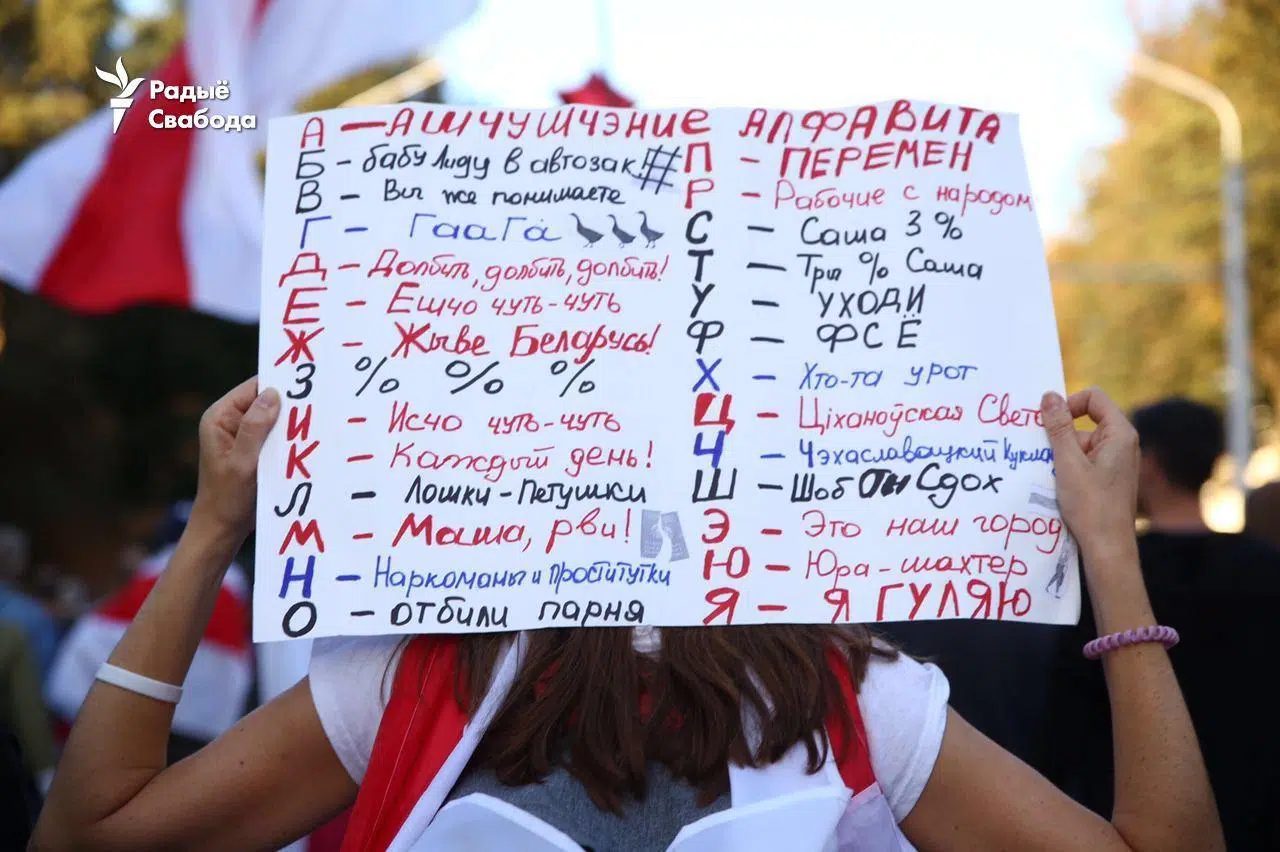 Радыё
Свабода
А — АШЧУШЧЭНИЕ АЛФАВИТА
Б - бабу Лиду в автозак! #
В - Вы же понимаете
Г - ГааГа
Д - Долбить, долбить, долбить!
Е - Ешчо чуть-чуть
Ж - Жыве Беларусь!
З % % %
И - Исчо чуть-чуть
К - Каждый день!
Л - Лошки-Петушки
М - Маша, рви!
Н - Наркоманы и проститутки
О - отбили парня
П - ПЕРЕМЕН
Р - Рабочие с народом
С - Саша 3 %
Т - Три % Саша
У - УХОДИ
Ф - ФСЁ
Х - Хто-та урот
Ц - Ціханоўская Свет
Ч - Чэхаславацкий Кукла
Ш - Шоб Он Сдох
Э - Это наш город
Ю - Юра-шахтер
Я - Я ГУЛЯЮ